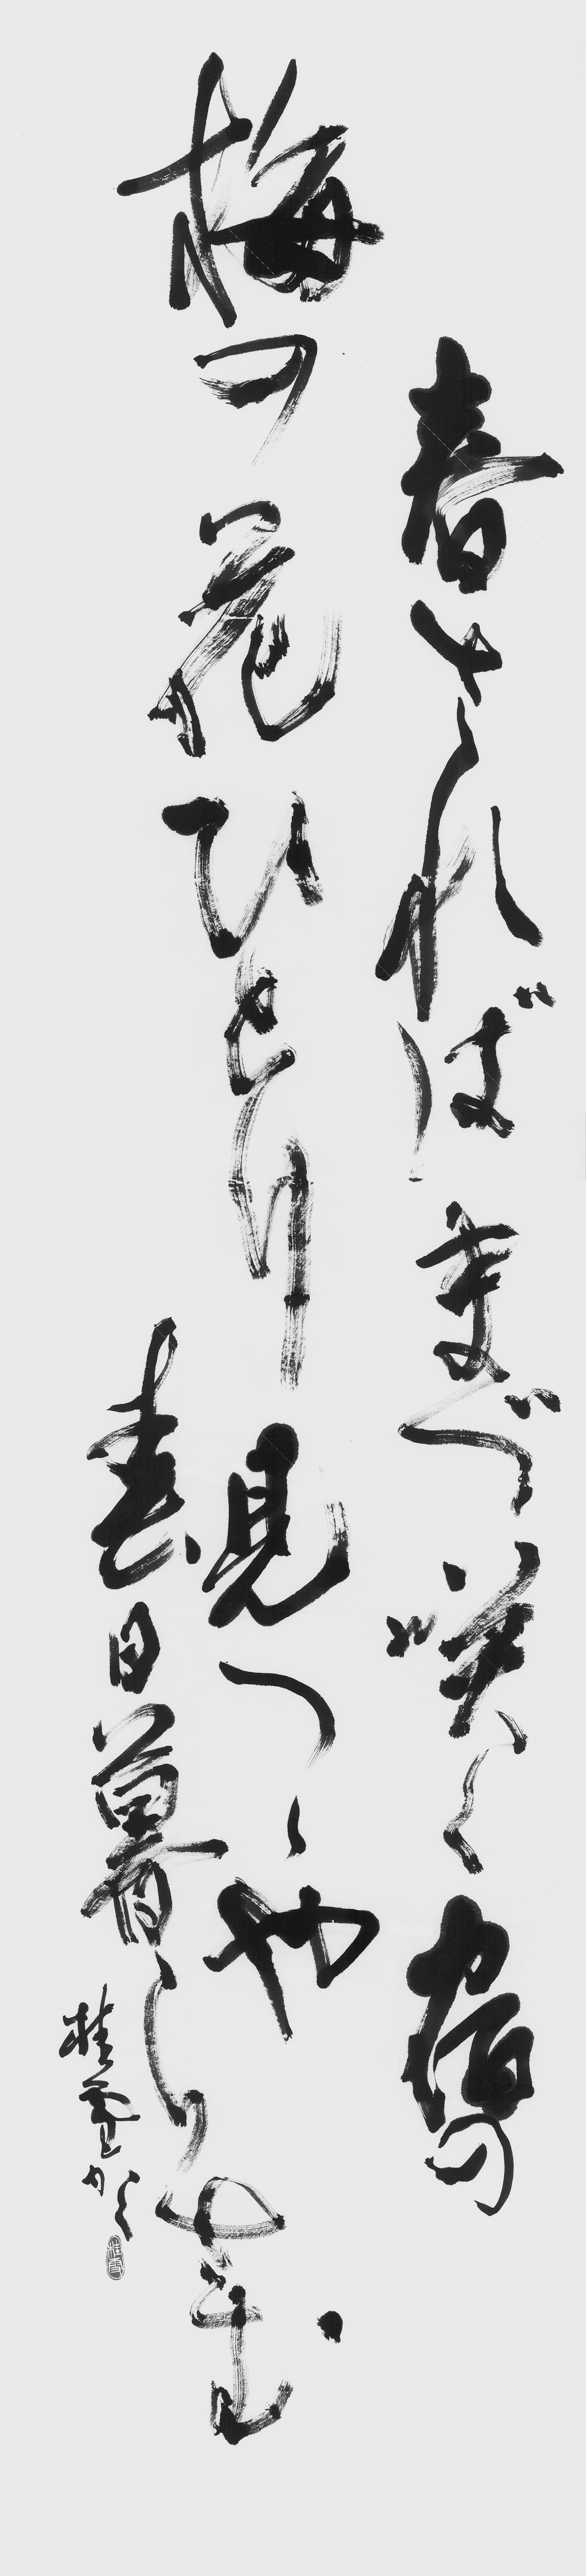 春さればまづ咲く宿の
梅の花ひとり見つゝや
春日暮らさむ
桂雲かく